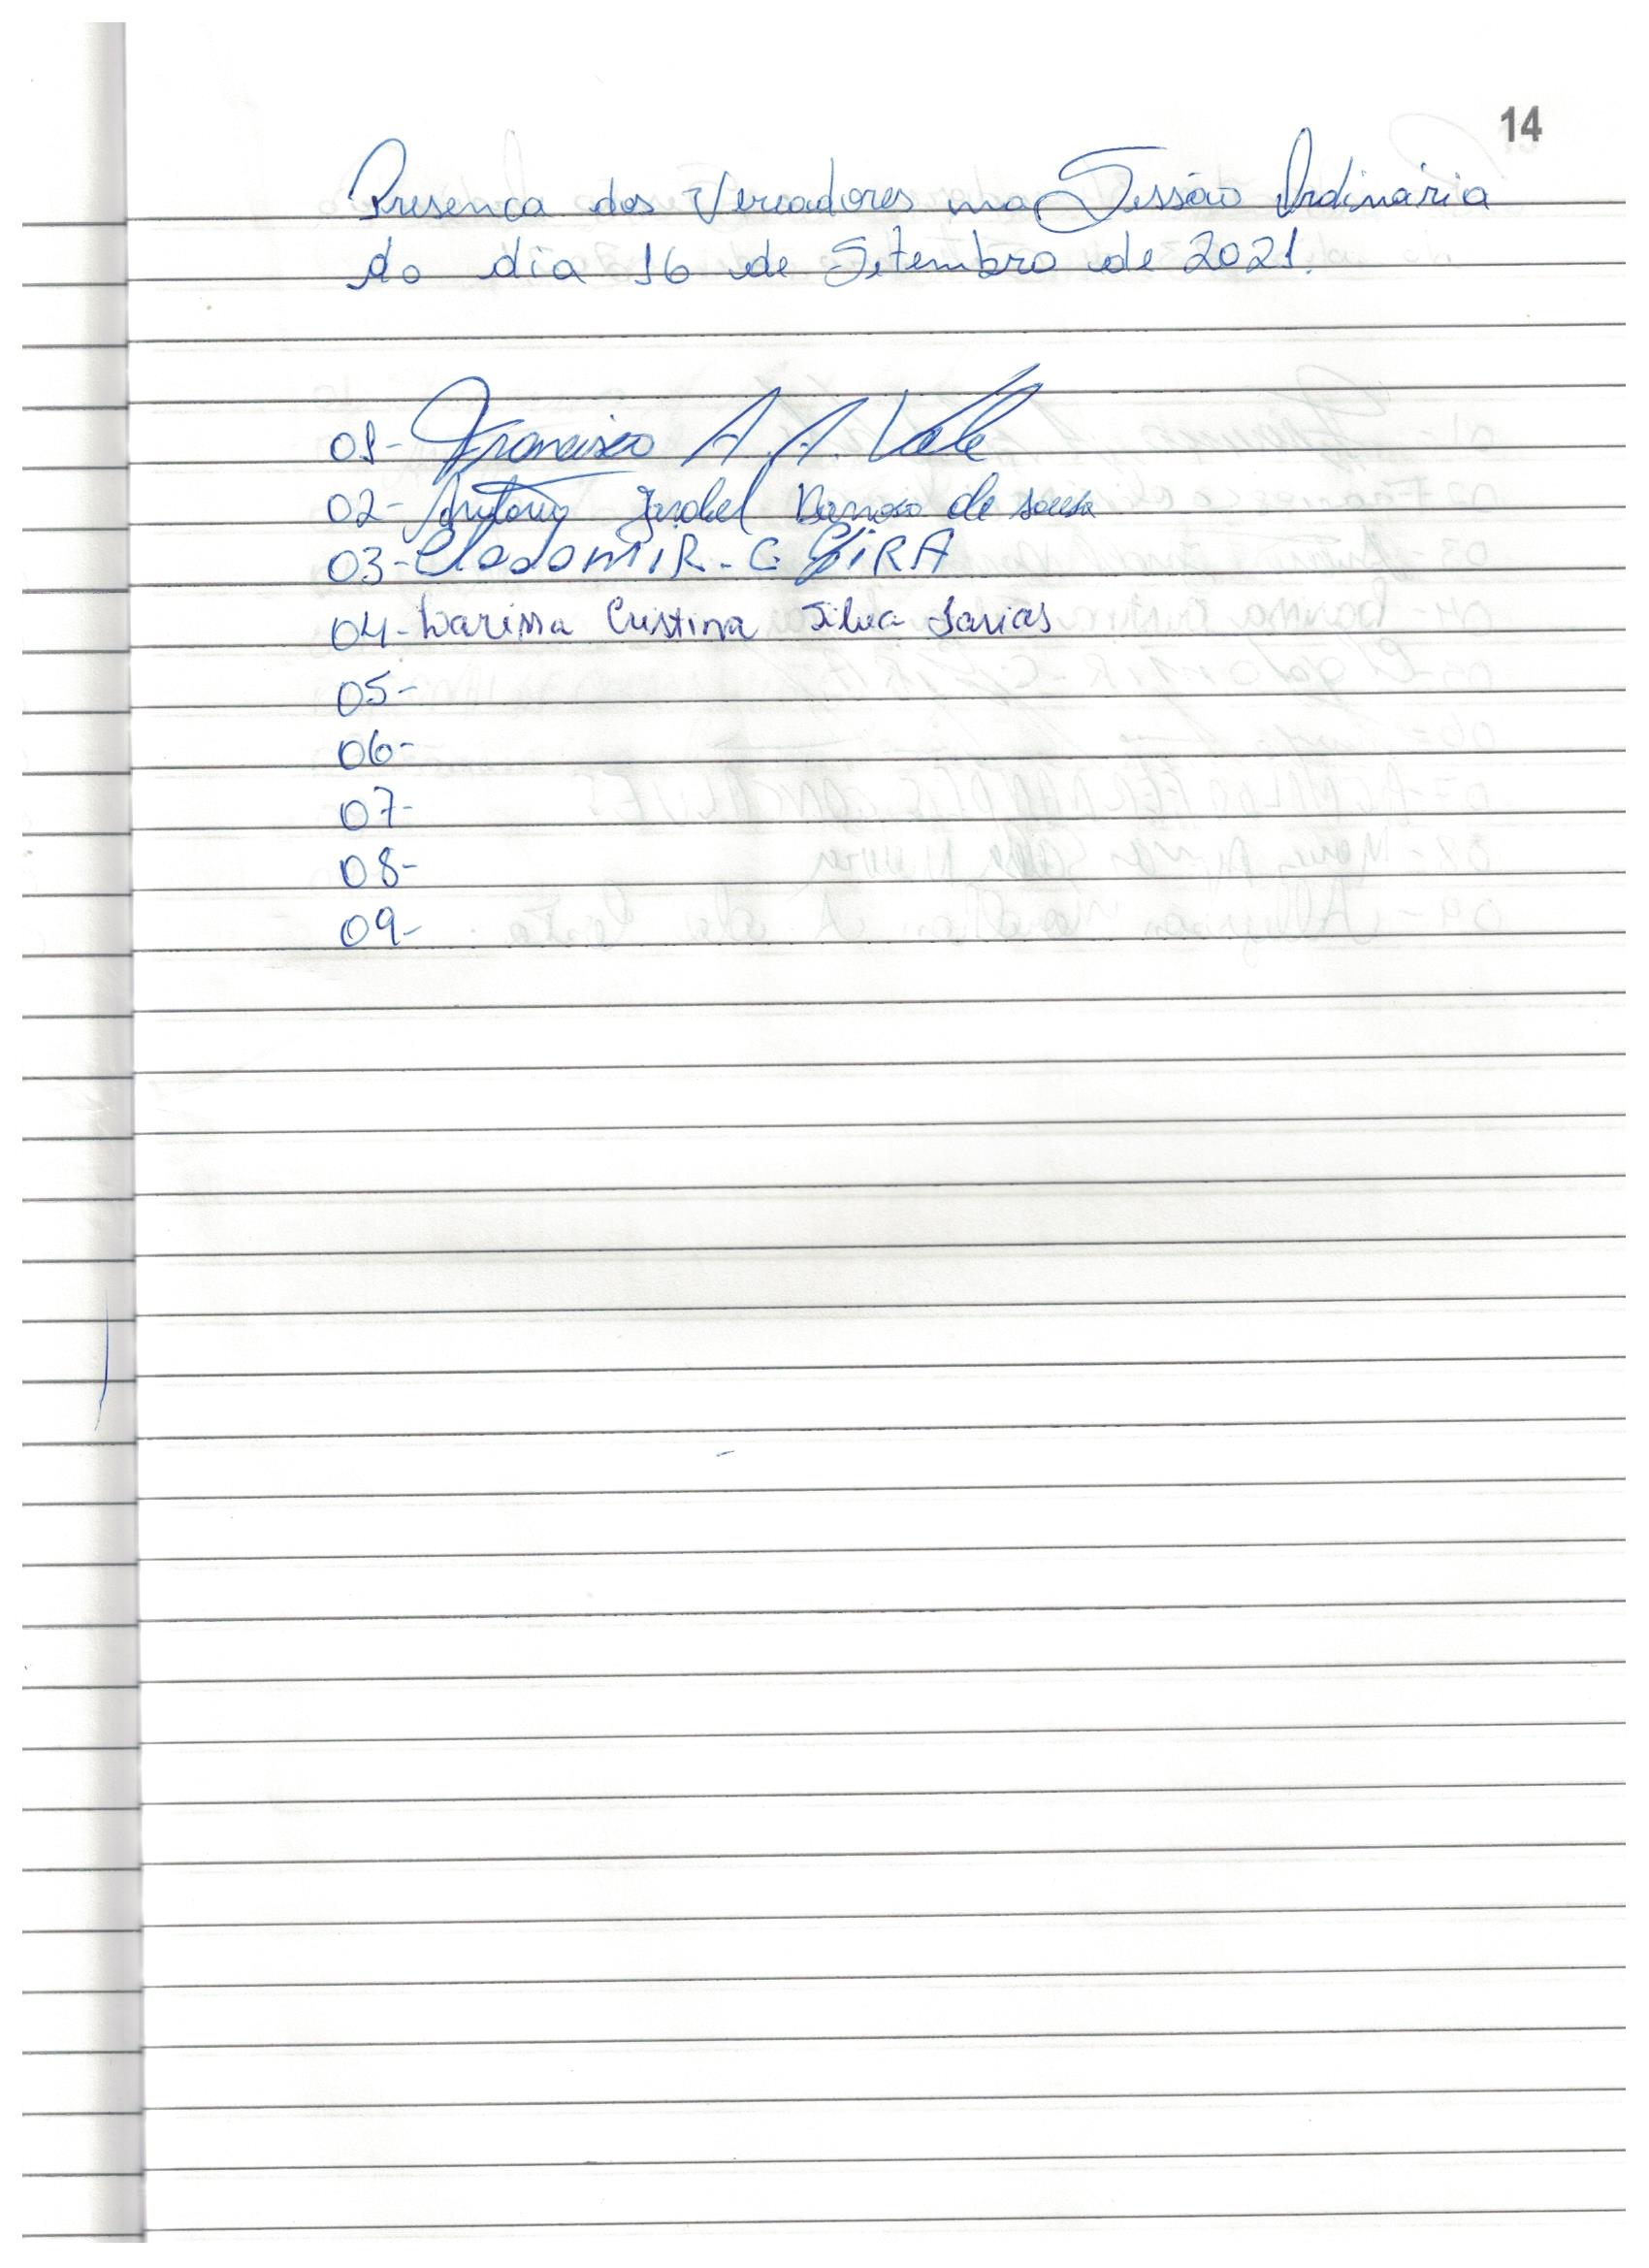 14
Presença dos Vereadores na Sessão Ordinária
do dia 16 de Setembro de 2021.
01- Francisco A. A. Vale
02- Antonio de Sousa
03- ClodomIR - C
04- Larissa Cristina Silva Farias
05-
06-
07-
08-
09-